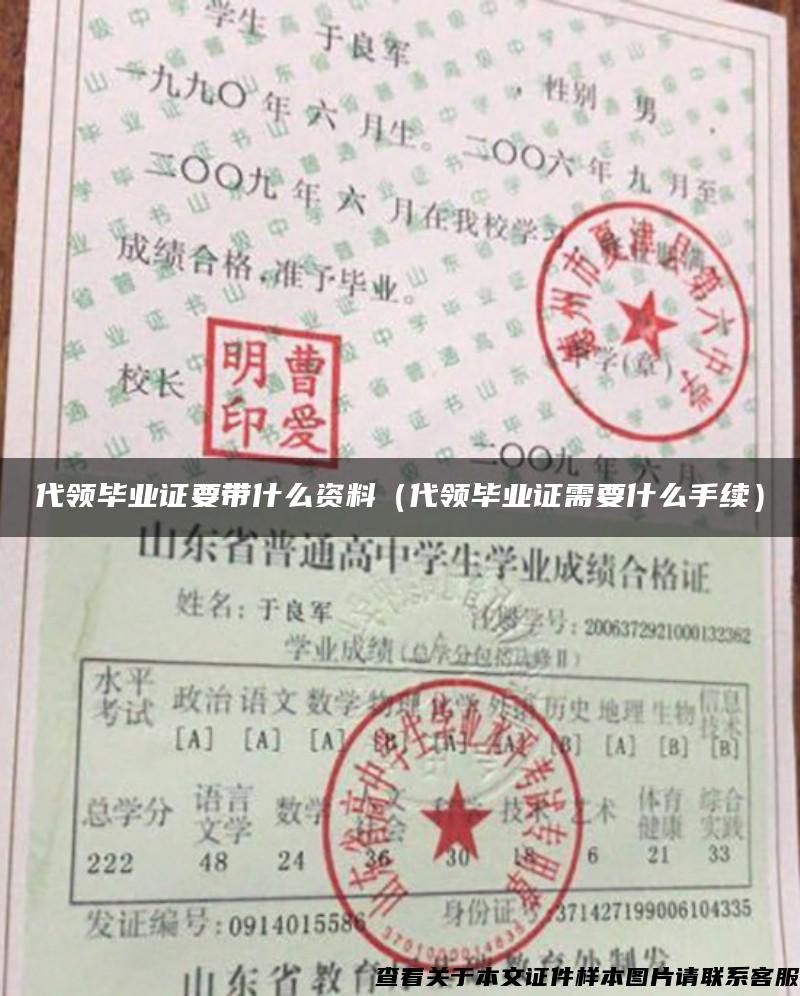 学生 于良军 ，性别 男 ，
一九九〇 年 六 月生。 二〇〇六 年 九 月至
二〇〇九 年 六 月在我校学习，
成绩合格，准予毕业。
德州市夏津县第六中学
中学(章)
校长
曹爱明印
二〇〇九 年 六 月
代领毕业证要带什么资料（代领毕业证需要什么手续）
山东省普通高中学生学业成绩合格证
姓名：于良军 学号：2006372921000132362
学业成绩(总学分包括选修Ⅱ)
水平考试 政治 语文 数学 物理 化学 外语 历史 地理 生物 信息技术
[A] [A] [A] [B] [A] [B] [A] [B] [B]
总学分 语言文学 数学 技术 艺术 体育健康 综合实践
222 48 24 36 30 18 6 21 33
山东省高中学生学业水平考试专用章
发证编号：0914015586 身份证号：371427199006104335
山东省教育厅基础教育处制发
查看关于本文证件样本图片请联系客服